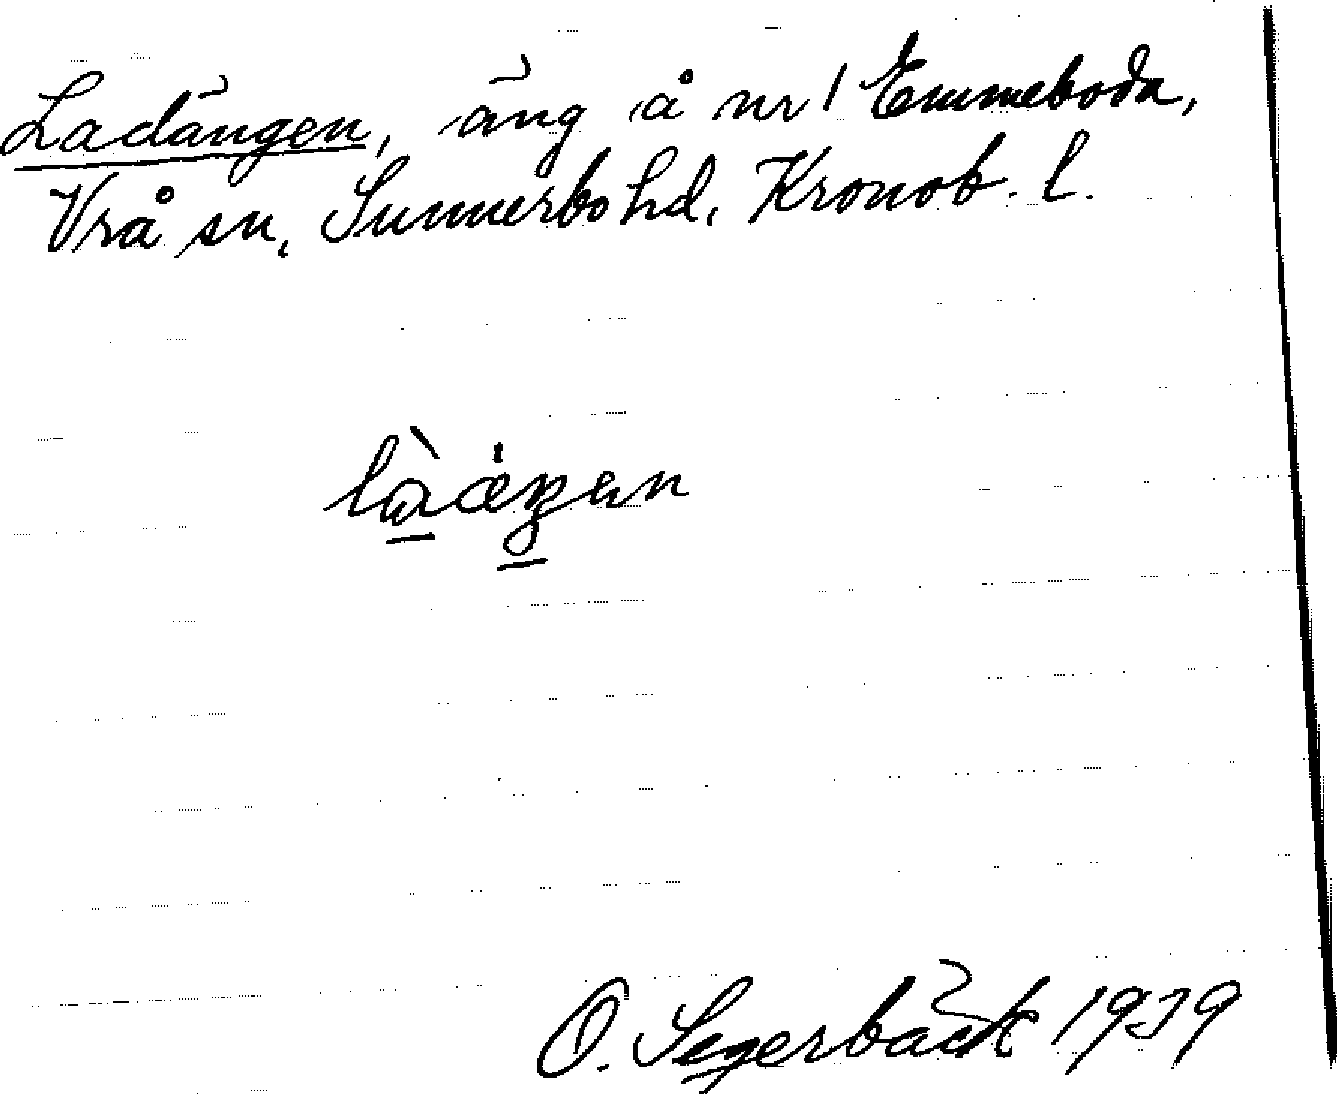 Ladängen, äng å nr 1 Emmeboda,
Vrå sn, Sunnerbo hd, Kronob. l.
O. Segerbäck 1939